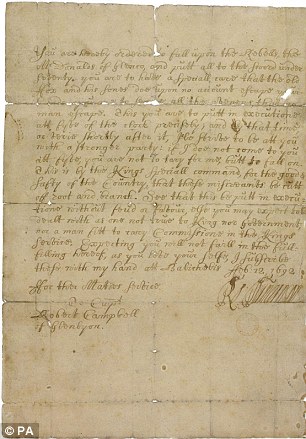 You are hereby ordered to fall upon the Rebells, the
McDonalds of Glenco, and putt all to the sword under
seventy. you are to have a speciall care that the old
Fox and his sones doe upon no account escape your
hands, you are to secure all the avenues that no
man escape. This you are to putt in executione
att fyve of the clock precisely; and by that time
or very shortly after it, I'll strive to be att you
with a stronger party: if I doe not come to you
att fyve, you are not to tary for me, butt to fall on.
This is by the Kings speciall command, for the good &
safty of the Country, that these miscreants be cutt
off root and branch. See that this be putt in execu
tione without feud or favour, else you may expect to be
dealt with as one not true to King nor Government
nor a man fitt to cary Commissione in the Kings
service. Expecting you will not faill in the full
filling hereof, as you love your selfe, I subscribe
these with my hand att Balicholis Feb: 12, 1692
For their Maties service
To Capt
Robert Campbell
of Glenlyon
© PA